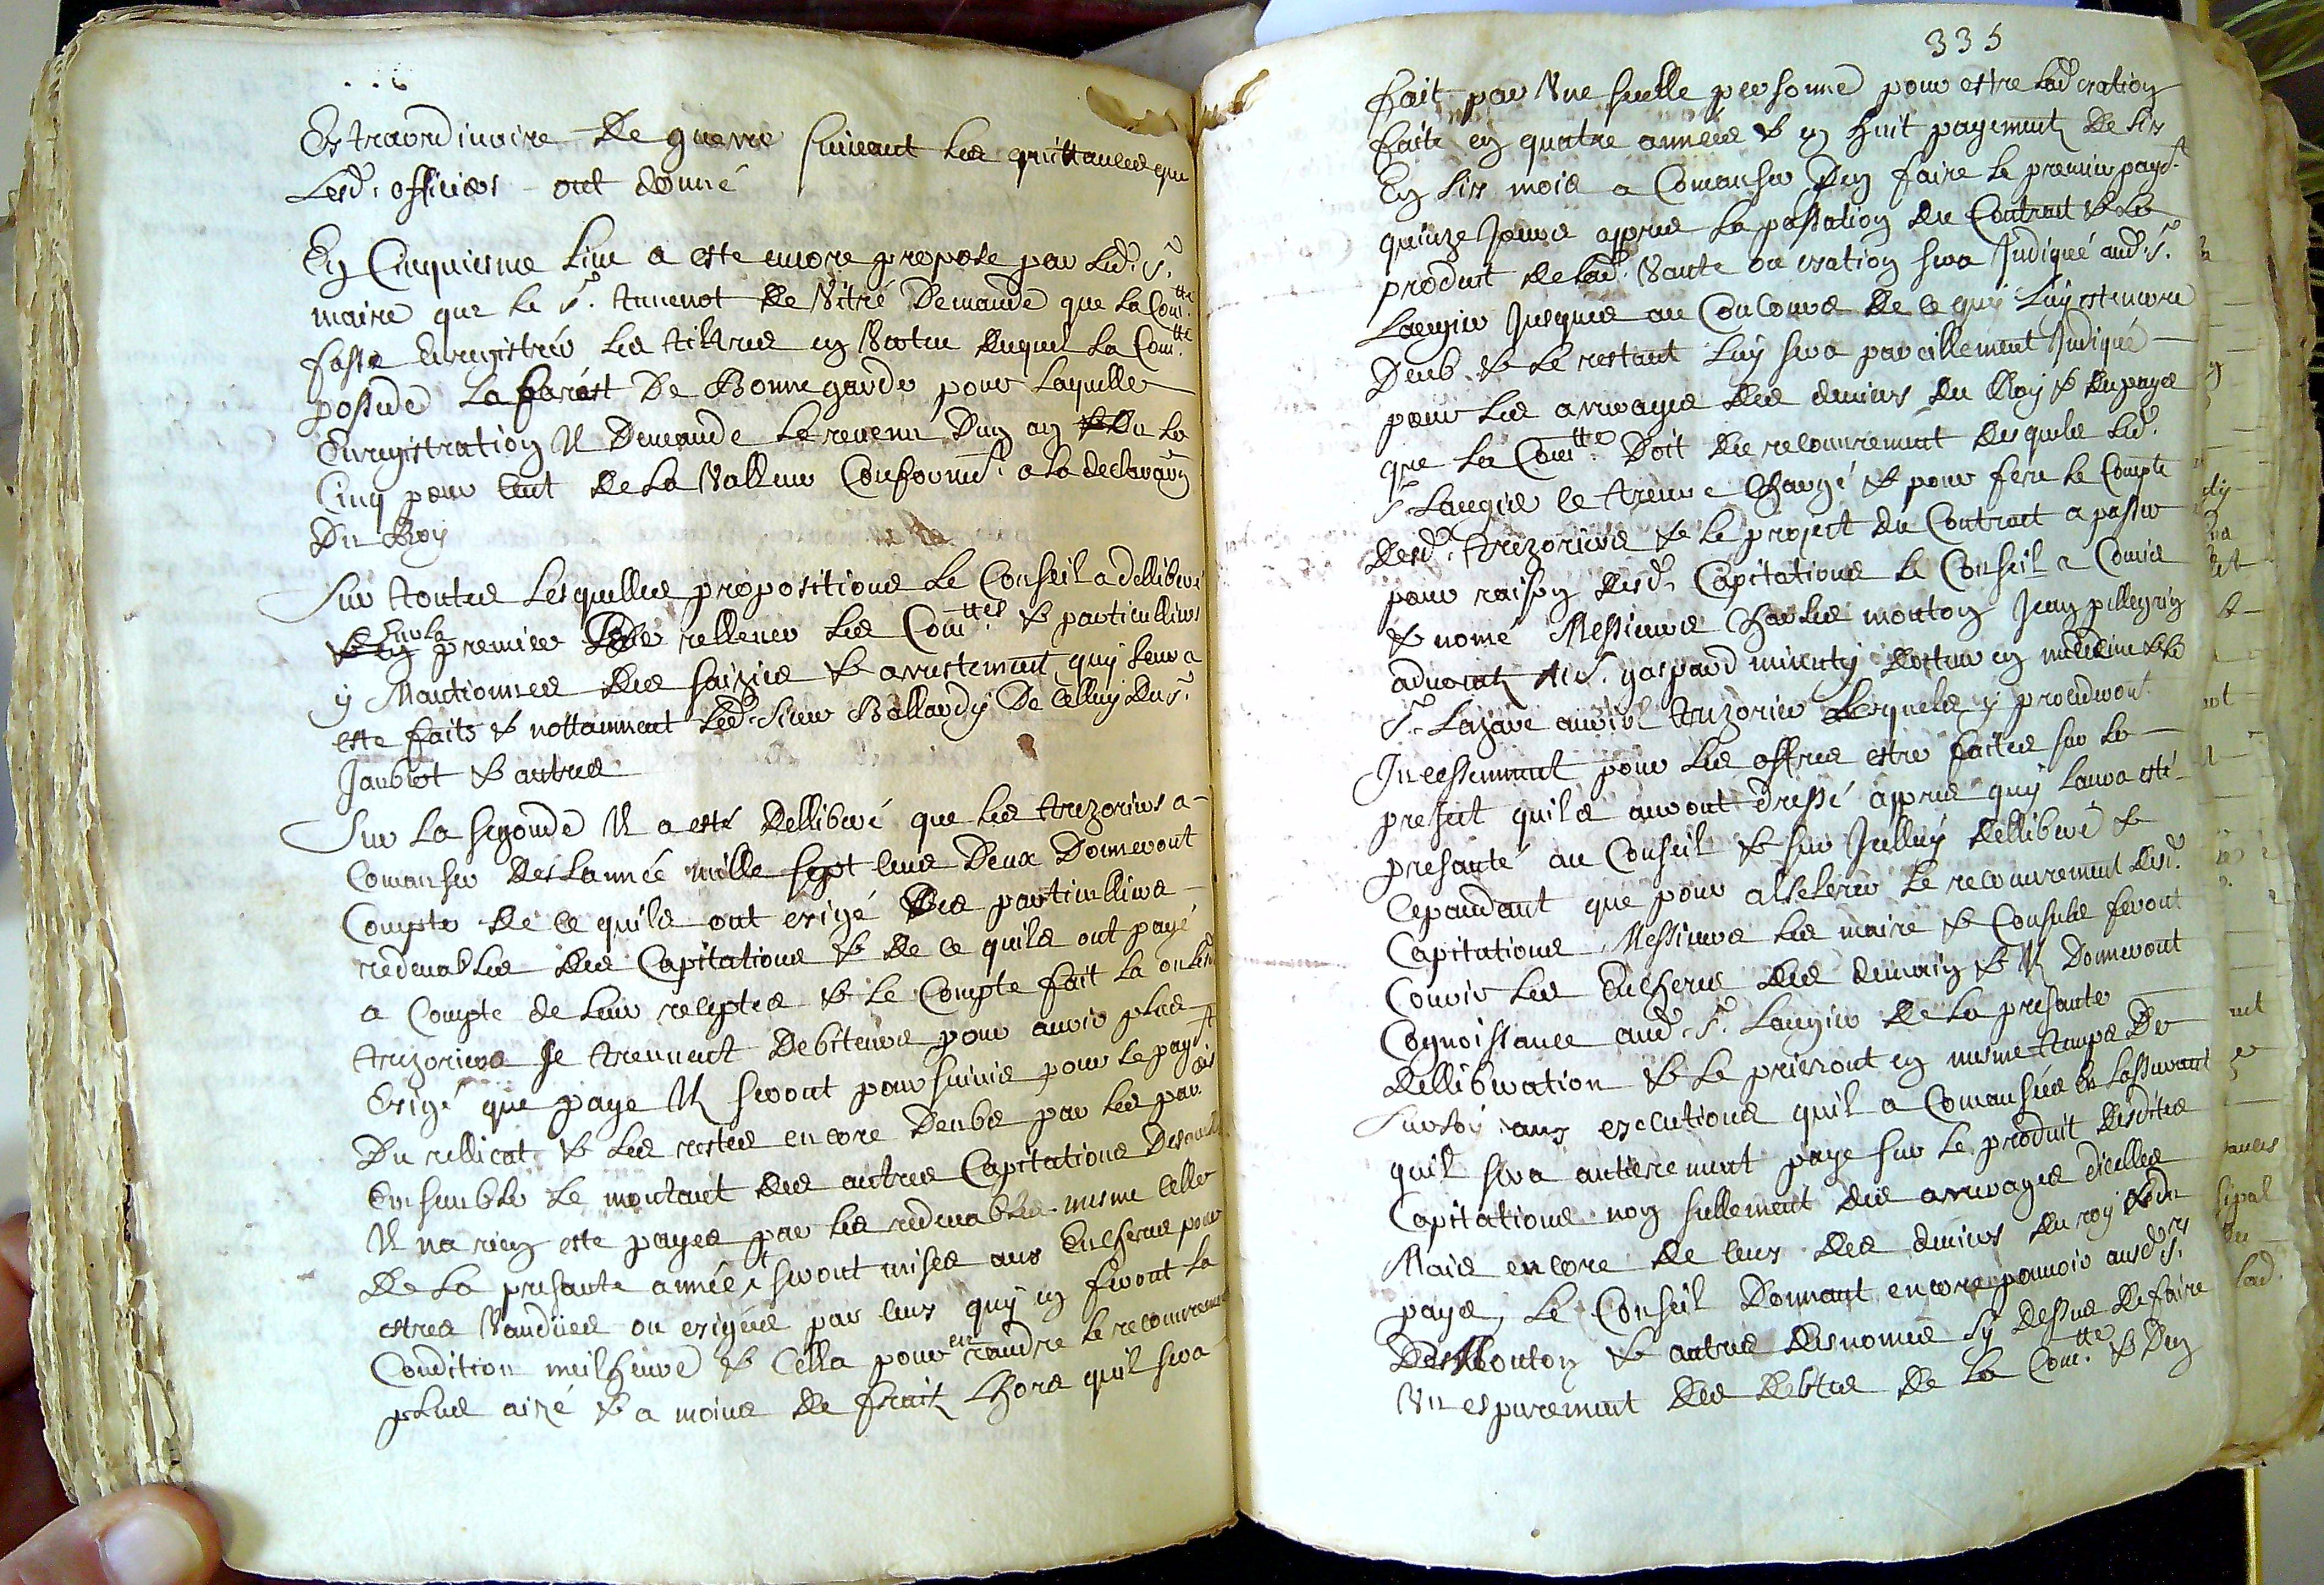 Extraordinaire De guerre suivant les quittances que
Lesd. officiers ont donné
En Cinquiesme Lieu a este encore propose par led. Sr.
maire que le Sr. Annenot De Vitré Demande que la Comtte.
fasse Enregistrér les tiltres en Vertu duquel la Comtte.
possede La forést De Bonnegarde pour laquelle
Enregistration Il Demande le revenu D'un an Du le
Cinq pour cent de la Valleur Conformt. a la declaraōn
Du Roy
Sur toutes Lesquelles propositions le Conseil a delliberé
sur la premiere rellever les Comttes. & particulliers
y Mantionnes des saizies & arrestement quy leur a
este faits & nottamment led. Sieur Ballardy De celluy du Sr.
Jaubert & autres
Sur la segonde Il a esté Delliberé que les trezoriers a
Comanser des lannée mille sept cens Deux Donneront
Compte de ce quils ont exigé des particulliers
redevables des Capitations & de ce quils ont payé
a Compte de leur receptes & le Compte fait la ou lesd.
trezoriers se treuvent Debiteurs pour avoir plus
Exigé que paye Ils seront poursuivis pour le payt.
Du rellicat & les restes encore Deubs par les parers
Ensemble le montant des autres Capitations Desquelles
Il na rien este payes par les redevables mesme celle
de la presante année seront mises aux Encheres pour
estres Vandües ou exigées par ceux quy en feront la
Condition meilheure & Cella pour en randre le recouvrement
plus aizé & a moins de fraix Lhors quil sera
335
fait par Une seulle personne pour estre lad. exation
faite en quatre années & en huit payements de six
En six mois a Comanser D'en faire le premier payt.
quinze Jours appres la passation du Contract & le
produit de lad. Vante ou exation sera Indiqué aud. Sr.
Laugier Jusques au Concours de ce quy luy est encore
Deub & le restant luy sera pareillement Indiqué
pour les arrerages des deniers du Roy & du pays
que la Comtte. Doit du recouvrement desquels led.
Sr. Laugier ce treuve Chargé & pour fere le Compte
desd. trezoriers & le project du Contract a passer
pour raison desd. Capitations le Conseil a Comis
& nomé Messieurs Charles mouton Jean pellegrin
advocats Sr. gaspard docteur en medecine & le
Sr. Lazare trezorier Lesquels y procederont
Incessemment pour les offres estre faites sur le
preject quils auront dressé appres quy laura esté
presanté au Conseil & sur Icelluy delliberé &
Cepandant que pour alselerer le recouvrement desd.
Capitations Messieurs les maire & Consuls feront
Courir les Encheres des demain & Ils Donneront
Cognoissance aud. Sr. Laugier de la presante
delliberation & le prieront en mesme tamps De
Sursoi aux executions quil a Comansées en Lassurant
quil sera antierement paye sur le produit desdites
Capitations non sullement des arrerages dicelles
Mais encore de ceux des deniers du roy & du
pays, Le Conseil Donnant encore pouvoir ausd. Srs.
Des Mouton & autres des nomes sy dessus de faire
Un espurement des debtes de la Comtte. & D'en